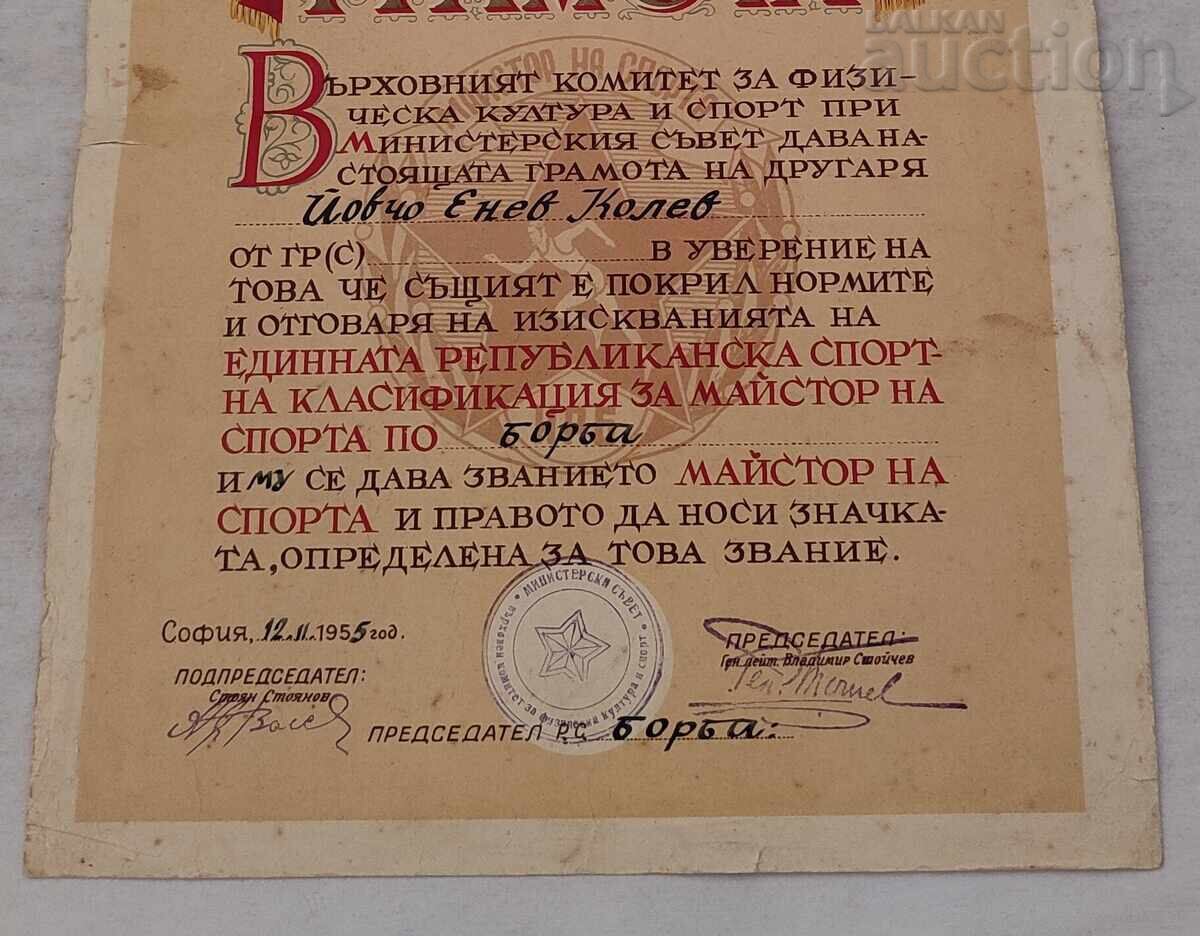 ГРАМОТА
BALKAN
auction
ВЪРХОВНИЯТ КОМИТЕТ ЗА ФИЗИ-
ЧЕСКА КУЛТУРА И СПОРТ ПРИ
МИНИСТЕРСКИЯ СЪВЕТ ДАВА НА-
СТОЯЩАТА ГРАМОТА НА ДРУГАРЯ
Йовчо Енев Колев
ОТ ГР(С) В УВЕРЕНИЕ НА
ТОВА ЧЕ СЪЩИЯТ Е ПОКРИЛ НОРМИТЕ
И ОТГОВАРЯ НА ИЗИСКВАНИЯТА НА
ЕДИННАТА РЕПУБЛИКАНСКА СПОРТ-
НА КЛАСИФИКАЦИЯ ЗА МАЙСТОР НА
СПОРТА ПО борба
И му СЕ ДАВА ЗВАНИЕТО МАЙСТОР НА
СПОРТА И ПРАВОТО ДА НОСИ ЗНАЧКА-
ТА, ОПРЕДЕЛЕНА ЗА ТОВА ЗВАНИЕ.
МИНИСТЕРСКИ СЪВЕТ
върховен комитет за физическа култура и спорт
София, 12.II.1955 год.
ПРЕДСЕДАТЕЛ:
Ген. лейт. Владимир Стойчев
ПОДПРЕДСЕДАТЕЛ:
Стоян Стоянов
ПРЕДСЕДАТЕЛ Р.С. борба: